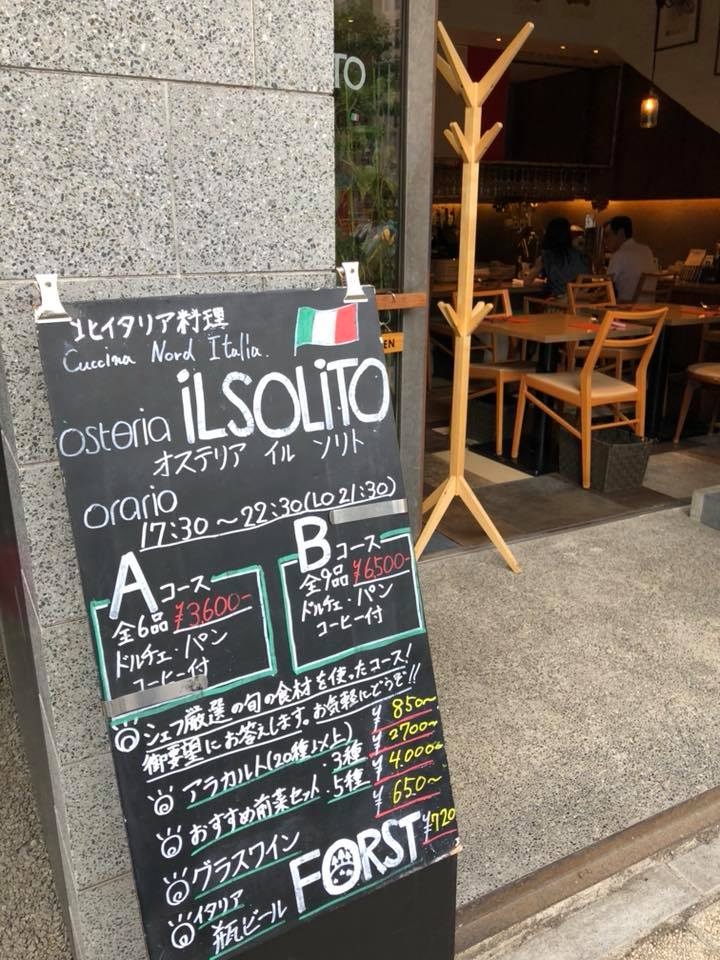 TO
EN
北イタリア料理
Cuccina Nord Italia.
osteria iLSOLiTO
オステリア イル ソリト
orario
17:30～22:30(LO 21:30)
Aコース
全6品 ¥3,600-
ドルチェ・パン
コーヒー付
Bコース
全9品 ¥6,500-
ドルチェ・パン
コーヒー付
シェフ厳選の旬の食材を使ったコース!
御要望にお答えします。お気軽にどうぞ!!
アラカルト(20種以上) ¥850～
おすすめ前菜セット・3種 ¥2700～
・5種 ¥4,000～
グラスワイン ¥650～
イタリア
瓶ビール FORST ¥720